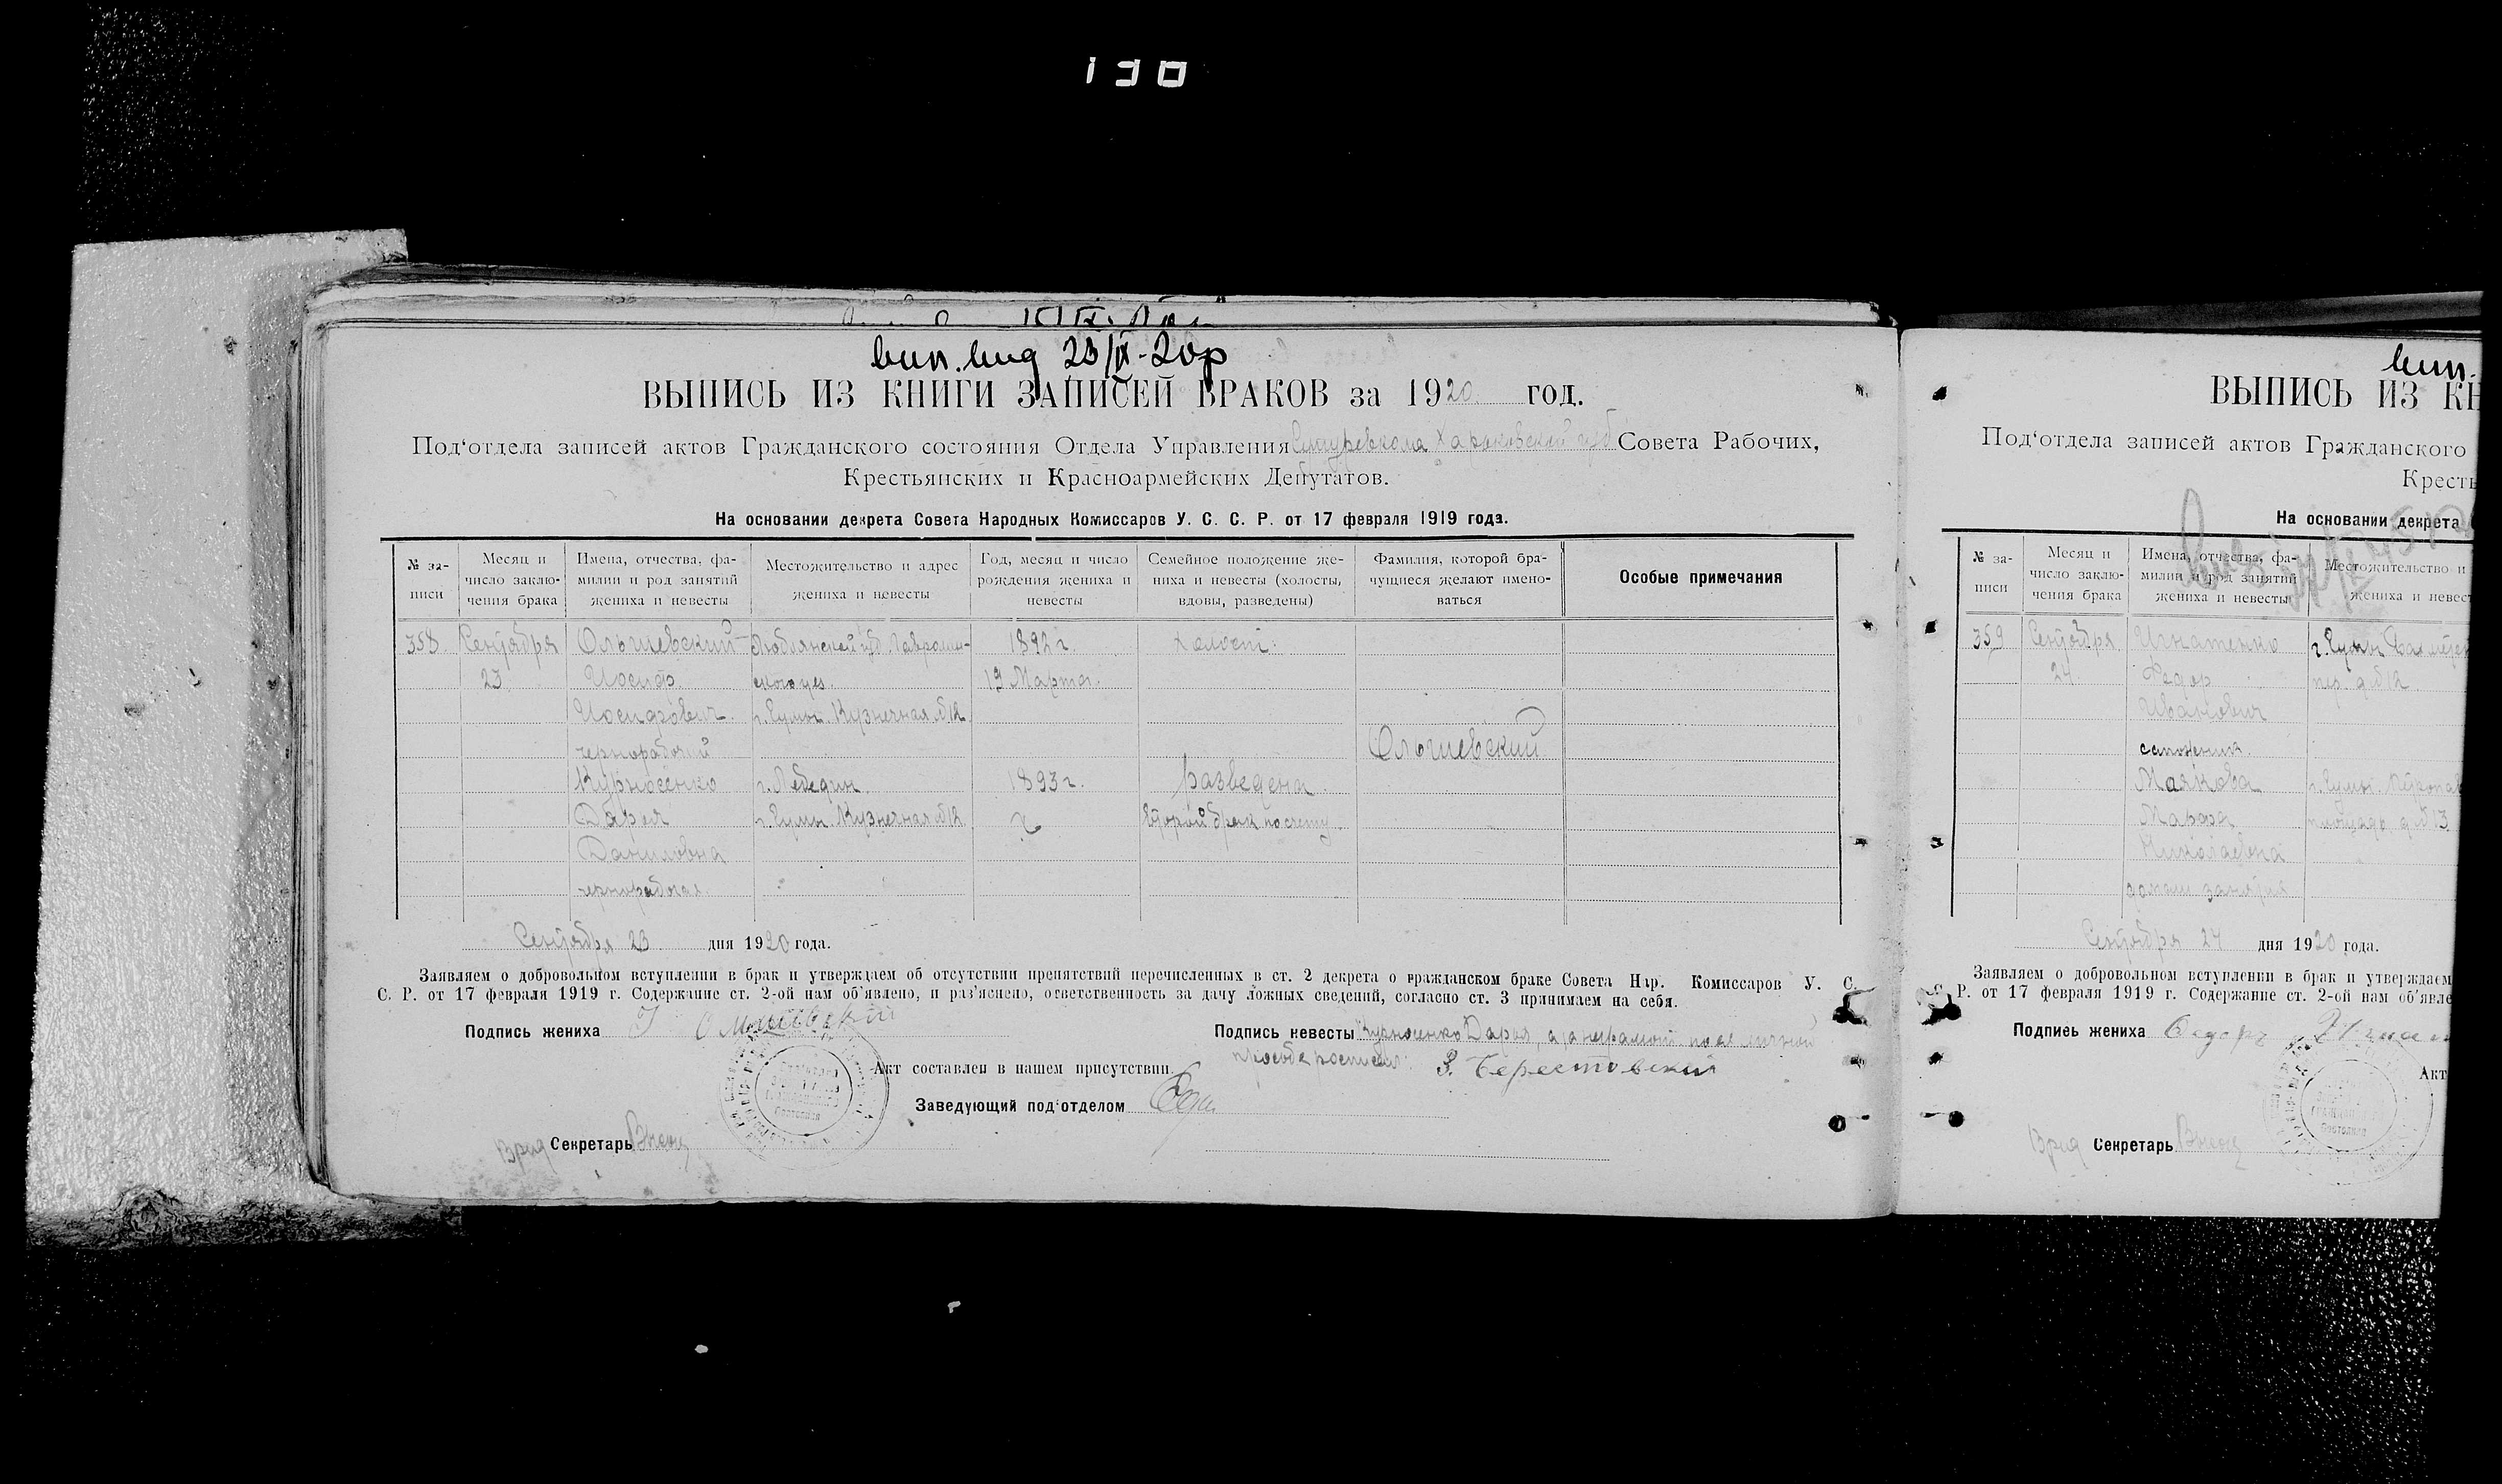 130
вип. вид 23/IX-20р
ВЫПИСЬ ИЗ КНИГИ ЗАПИСЕЙ БРАКОВ за 1920 год.
Под‘отдела записей актов Гражданского состояния Отдела Управления Харьковской губ Совета Рабочих,
Крестьянских и Красноармейских Депутатов.
На основании декрета Совета Народных Комиссаров У. С. С. Р. от 17 февраля 1919 года.
№ за- Месяц и Имена, отчества, фа- Местожительство и адрес Год, месяц и число Семейное положение же- Фамилия, которой бра- Особые примечания
число заклю- милии и род занятий рождения жениха и ниха и невесты (холосты, чущиеся желают имено-
писи чения брака жениха и невесты жениха и невесты невесты вдовы, разведены) ваться
358. Сентября Ольшевский Люблянской губ. 1892 г. холост.
23 Иосиф ского уез. 19 Марта.
Иосифович. г. Сумы. Кузнечная №12.
чернорабочий Ольшевский
Курносенко г. Лебедин. 1893 г. разведена.
Дарья г. Сумы. Кузнечная №12. Второй брак по счету.
Даниловна
чернорабочая.
Сентября 23 дня 1920 года.
Заявляем о добровольном вступлении в брак и утверждаем об отсутствии препятствий перечисленных в ст. 2 декрета о гражданском браке Совета Нар. Комиссаров У. С.
С. Р. от 17 февраля 1919 г. Содержание ст. 2-ой нам об‘явлено, и раз‘яснено, ответственность за дачу ложных сведений, согласно ст. 3 принимаем на себя.
Подпись жениха Подпись невесты Курносенко Дарья, а за неграмотн. по ее личной
Акт составлен в нашем присутствии. просьбе росписался З. Берестовский
Заведующий под‘отделом
Врид Секретарь
вип.
ВЫПИСЬ ИЗ КН
Под‘отдела записей актов Гражданского
Кресть
На основании декрета
№ за- Месяц и Имена, отчества, фа- Местожительство и
число заклю- милии и род занятий
писи чения брака жениха и невесты жениха и невест
359 Сентября Игнатенко г. Сумы
24. Федор пер. д. №12.
Иванович
сапожник.
Маякова г. Сумы.
Марфа площадь д. №13
Николаевна
домаш. занятия
Сентября 24 дня 1920 года.
Заявляем о добровольном вступлении в брак и утверждаем
С. Р. от 17 февраля 1919 г. Содержание ст. 2-ой нам об‘явле
Подпись жениха Федоръ
Акт
Врид Секретарь